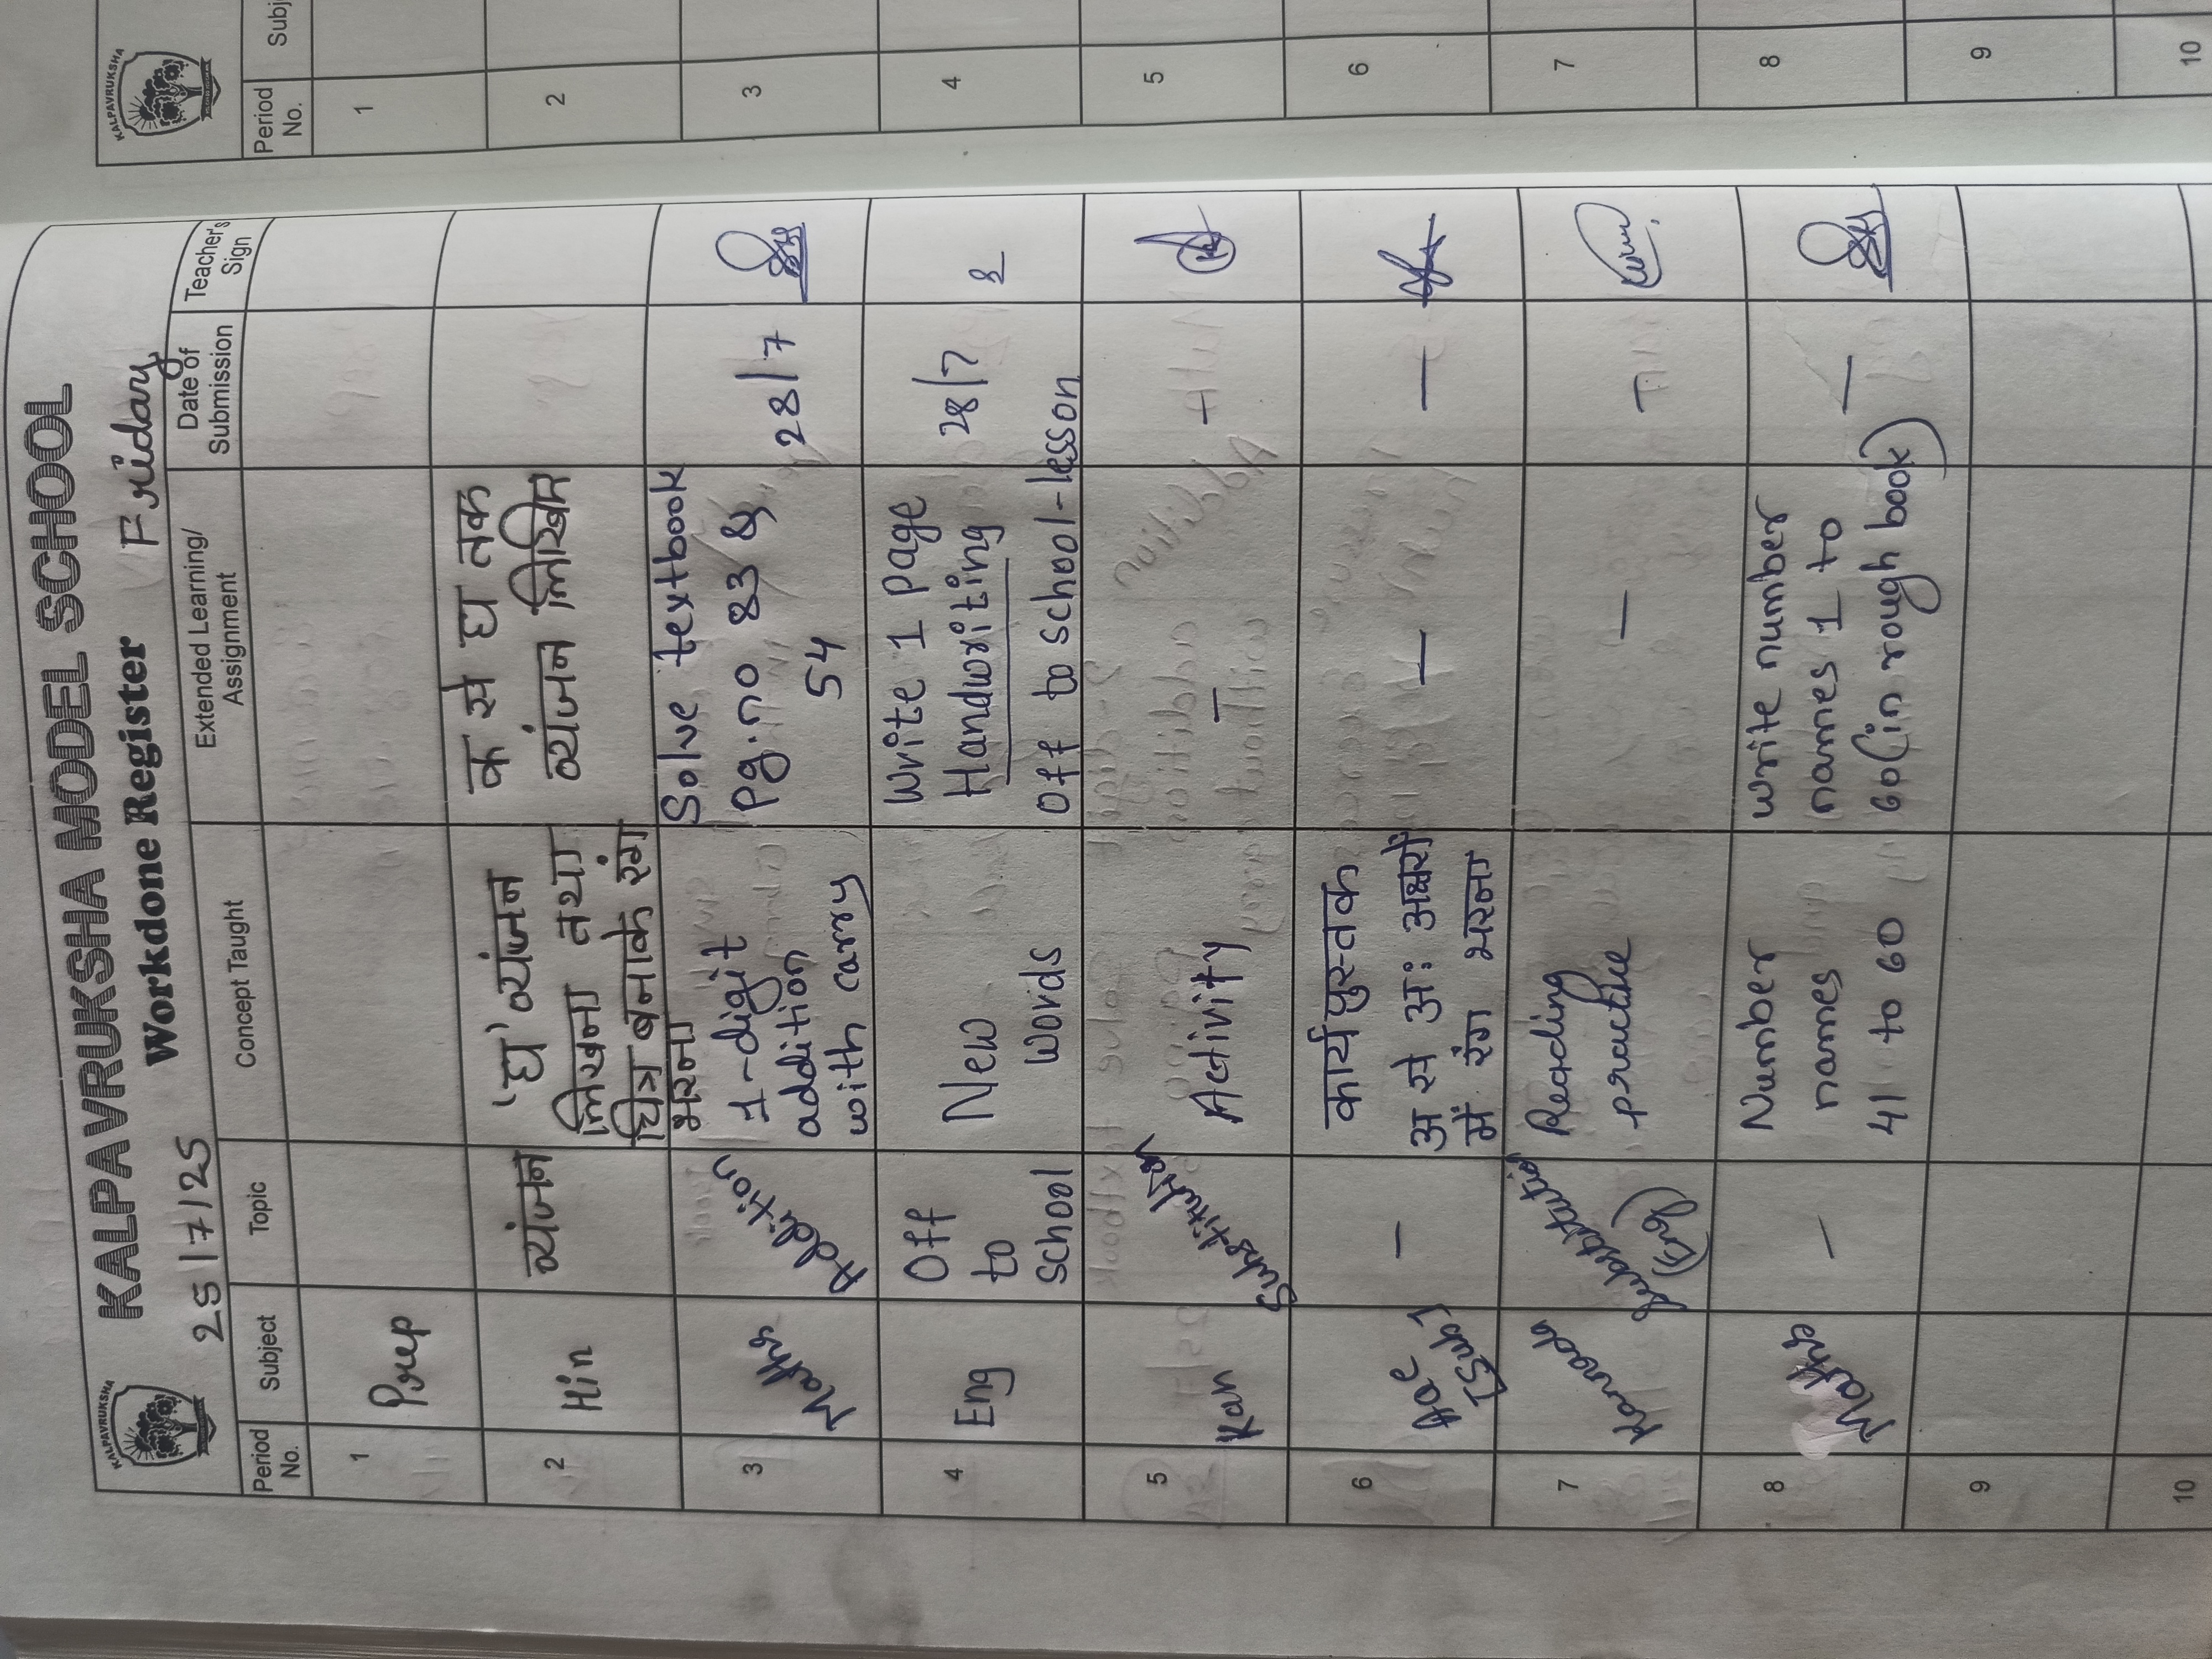 KALPAVRUKSHA
KALPAVRUKSHA MODEL SCHOOL
Workdone Register
25/7/25
Friday
Period No. Subject Topic Concept Taught Extended Learning/ Assignment Date of Submission Teacher's Sign
1 Prep
2 Hin व्यंजन 'घ' व्यंजन
लिखना तथा
चित्र बनाके रंग
भरना
क से घ तक
व्यंजन लिखिए
3 Maths Addition 1-digit
addition
with carry
Solve textbook
Pg.no 53 &
54
28/7
4 Eng Off
to
school
New
words
Write 1 page
Handwriting
Off to school-lesson
28/7
5 Kan Substitution Activity – –
6 [Sub] – कार्य पुस्तक
अ से अः अक्षरों
में रंग भरना
– –
7 Kannada Substitutio
(Eng)
Reading
practise
– –
8 Maths – Number
names
41 to 60
write number
names 1 to
60(in rough book)
–
9
10
KALPAVRUKSHA
Period No. Subj
1
2
3
4
5
6
7
8
9
10